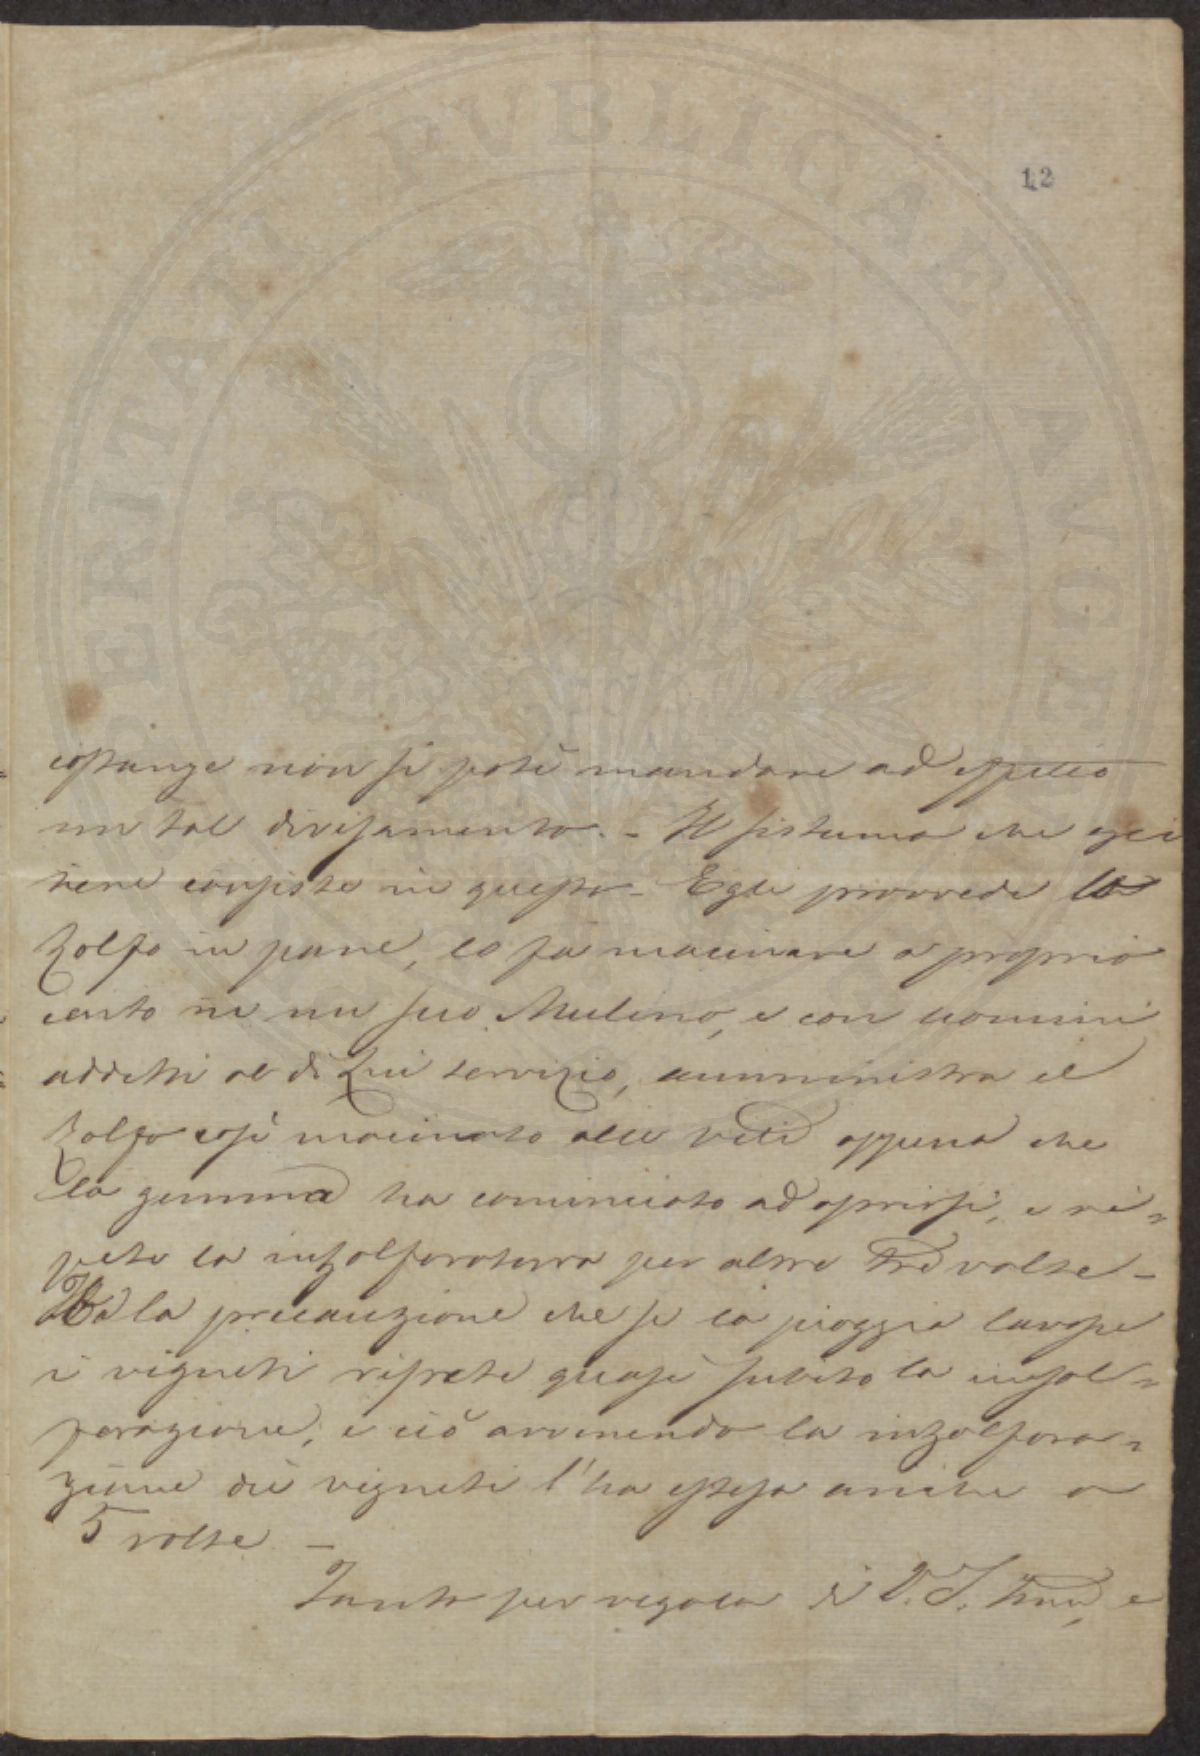 12
costanze non si potè mandare ad effetto
un tal divisamento. - Il sistema che egli
tiene consiste in questo - Egli provvede lo
zolfo in pane, lo fa macinare a proprio
conto in un suo Mulino, e con uomini
addetti al di lui servizio, amministra il
zolfo così macinato alle viti appena che
la gemma ha cominciato ad aprirsi, e ri=
pete la inzolforatura per altre tre volte -
Ha la precauzione che se la pioggia lavasse
i vigneti ripete quasi subito la insol=
forazione, e ciò avvenendo la inzolfora=
zione dei vigneti l'ha estesa anche a
5 volte -
Tanto per regola di V. S. Ill.ma, e